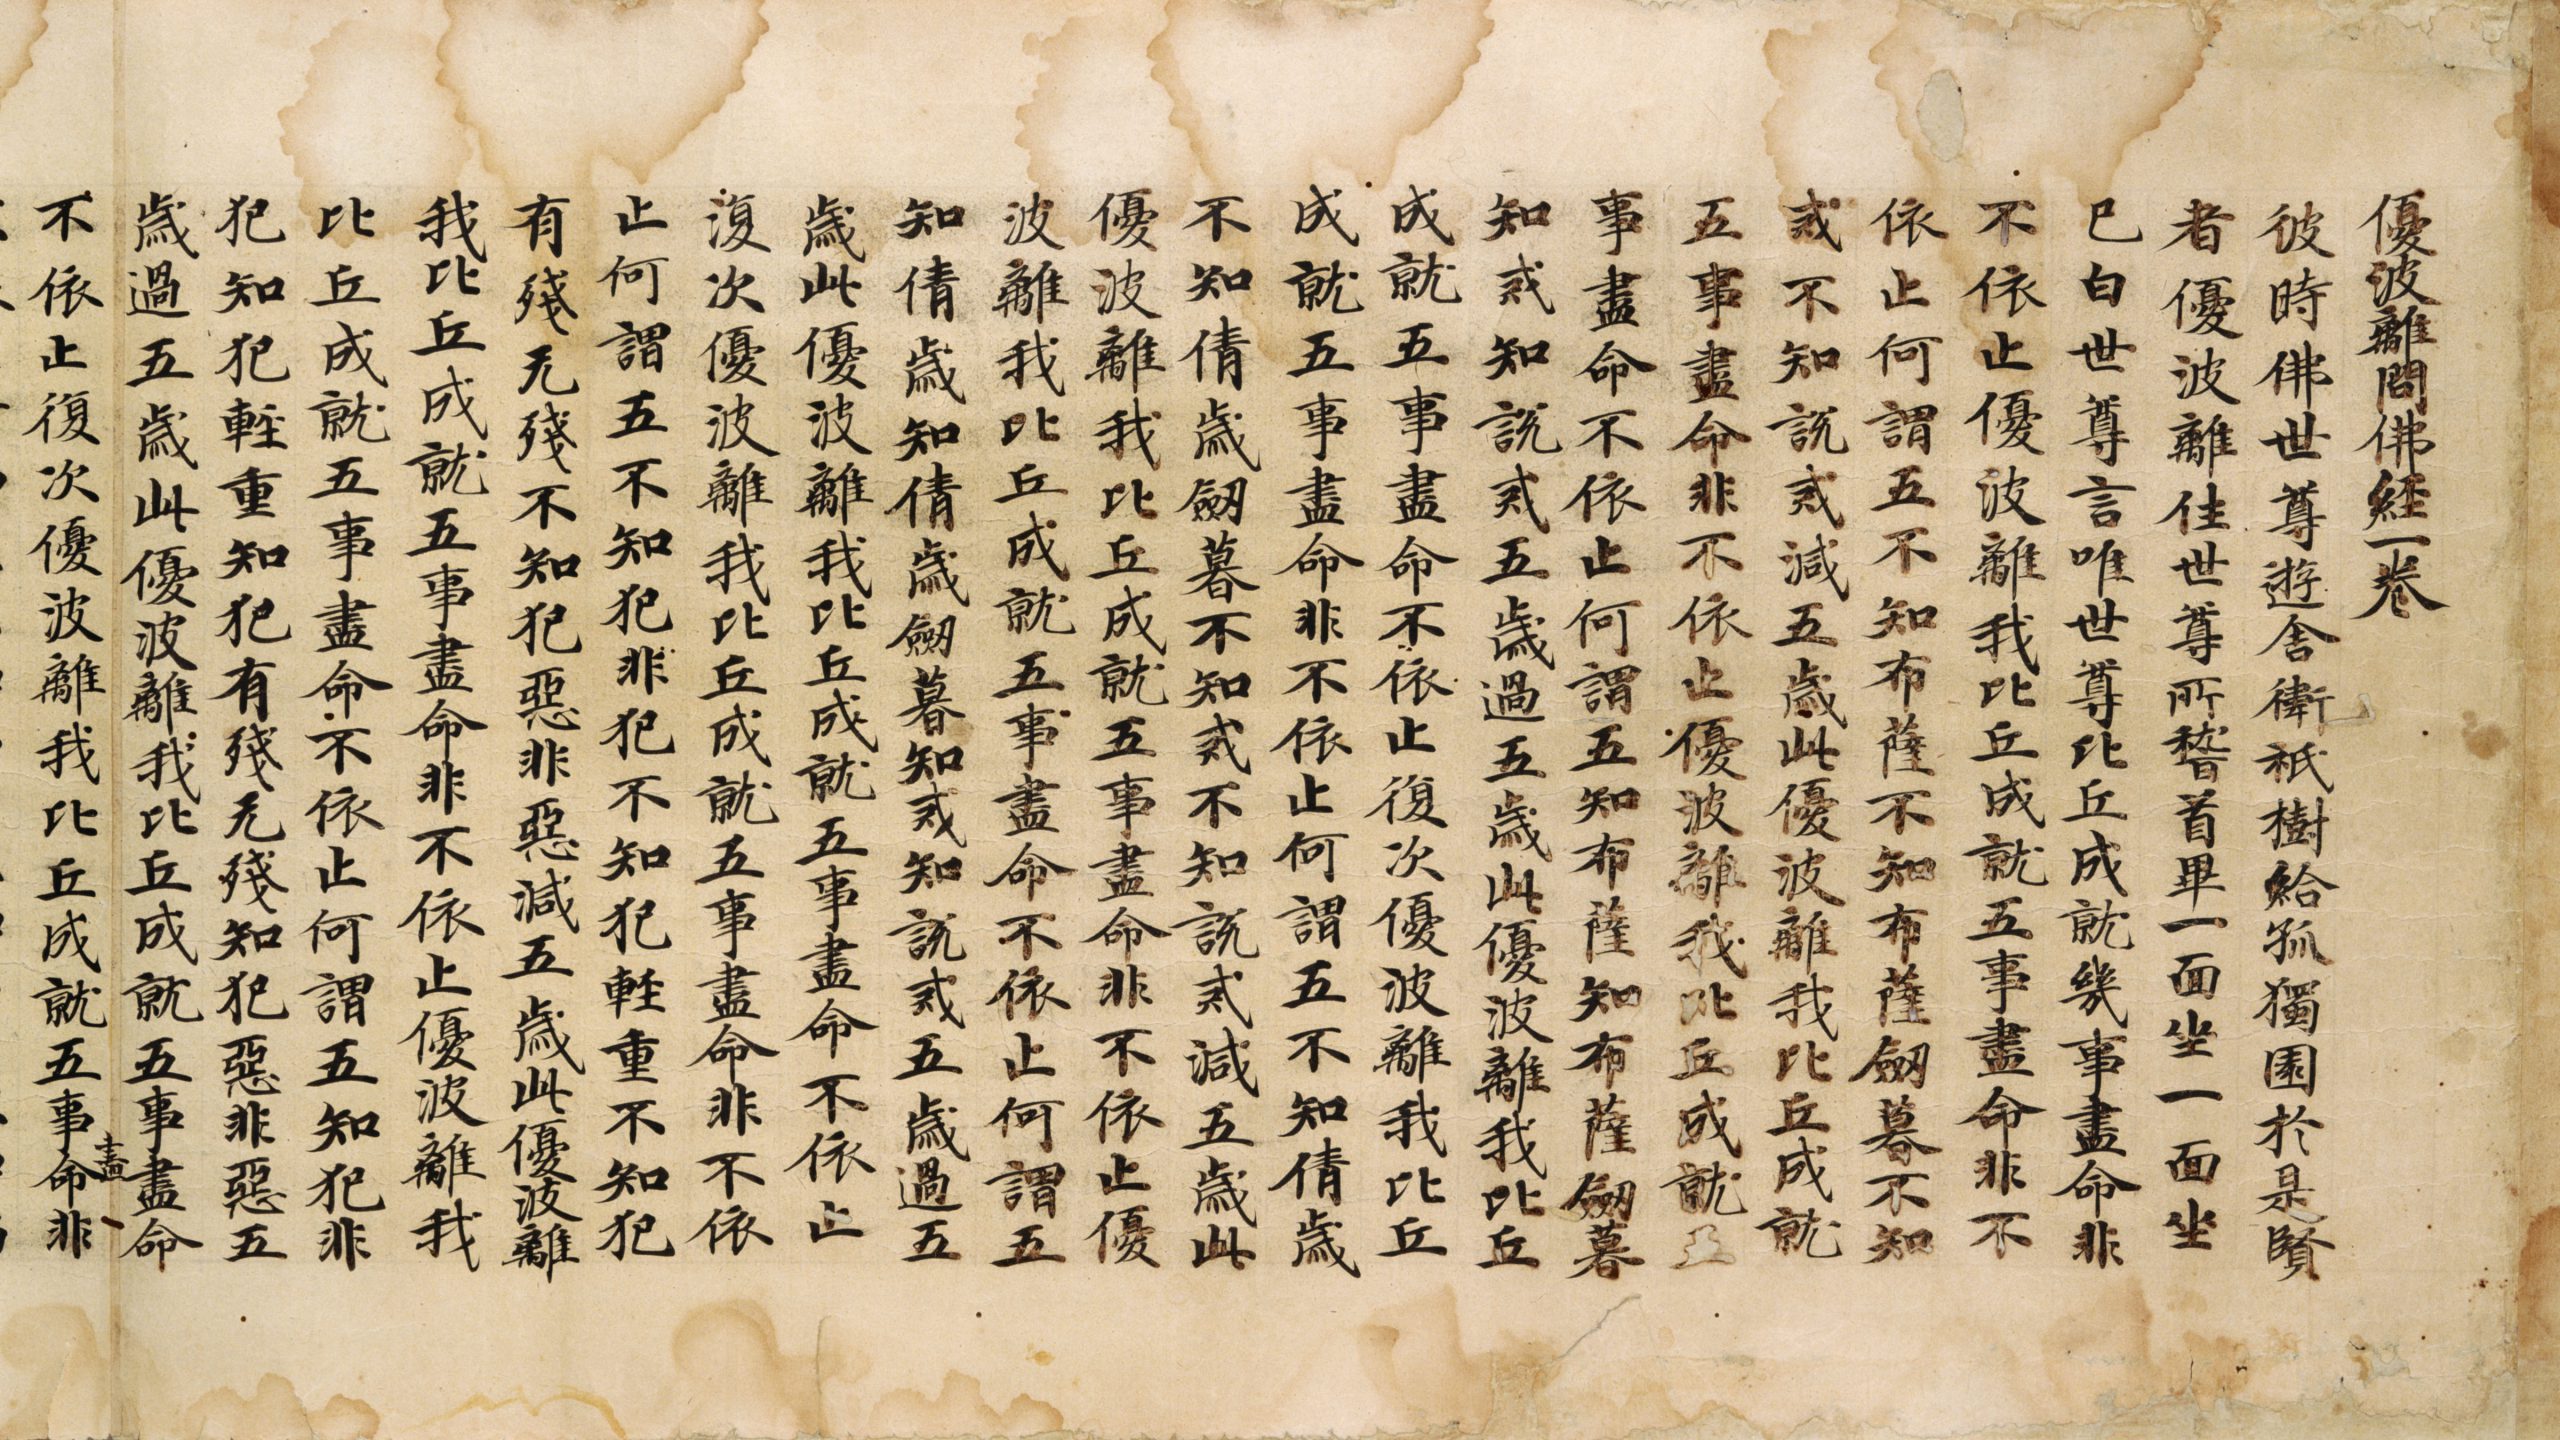 優波離問佛經一卷
彼時佛世尊遊舍衛祇樹給孤獨園於是賢
者優波離住世尊所稽首畢一面坐一面坐
已白世尊言唯世尊比丘成就幾事盡命非
不依止優波離我比丘成就五事盡命非不
依止何謂五不知布薩不知布薩劒暮不知
戒不知說戒減五歲此優波離我比丘成就
五事盡命非不依止優波離我比丘成就五
事盡命不依止何謂五知布薩知布薩劒暮
知戒知說戒五歲過五歲此優波離我比丘
成就五事盡命不依止復次優波離我比丘
成就五事盡命非不依止何謂五不知倩歲
不知倩歲劒暮不知戒不知說戒減五歲此
優波離我比丘成就五事盡命非不依止優
波離我比丘成就五事盡命不依止何謂五
知倩歲知倩歲劒暮知戒知說戒五歲過五
歲此優波離我比丘成就五事盡命不依止
復次優波離我比丘成就五事盡命非不依
止何謂五不知犯非犯不知犯輕重不知犯
有殘无殘不知犯惡非惡減五歲此優波離
我比丘成就五事盡命非不依止優波離我
比丘成就五事盡命不依止何謂五知犯非
犯知犯輕重知犯有殘无殘知犯惡非惡五
歲過五歲此優波離我比丘成就五事盡命
不依止復次優波離我比丘成就五事盡命非